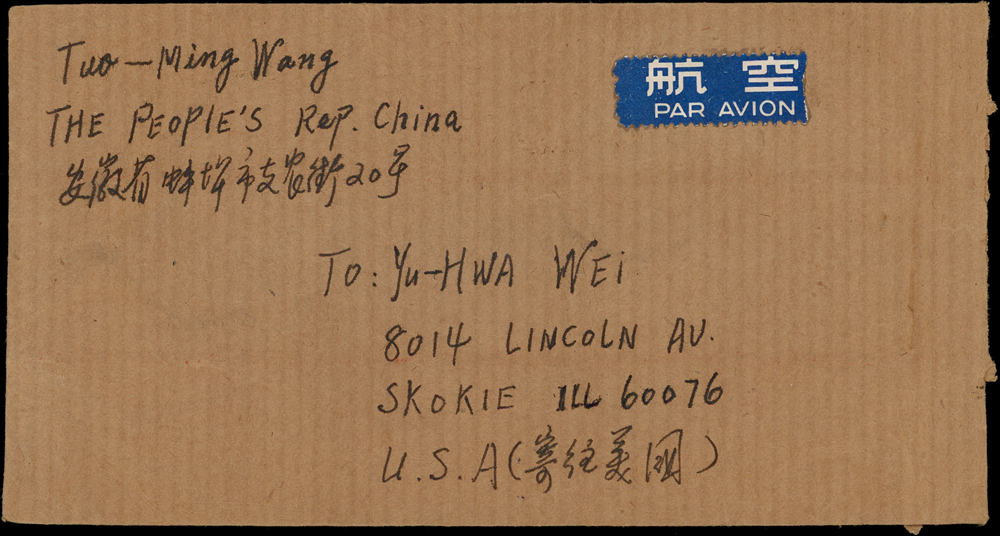 Tuo-Ming Wang
THE PEOPlE'S Rep. China
安徽省蚌埠市支农街20号
航空
PAR AVION
TO: Yu-HWA WEi
8014 LINCOLN AV.
SKOKIE ILL 60076
U.S.A(寄往美国)